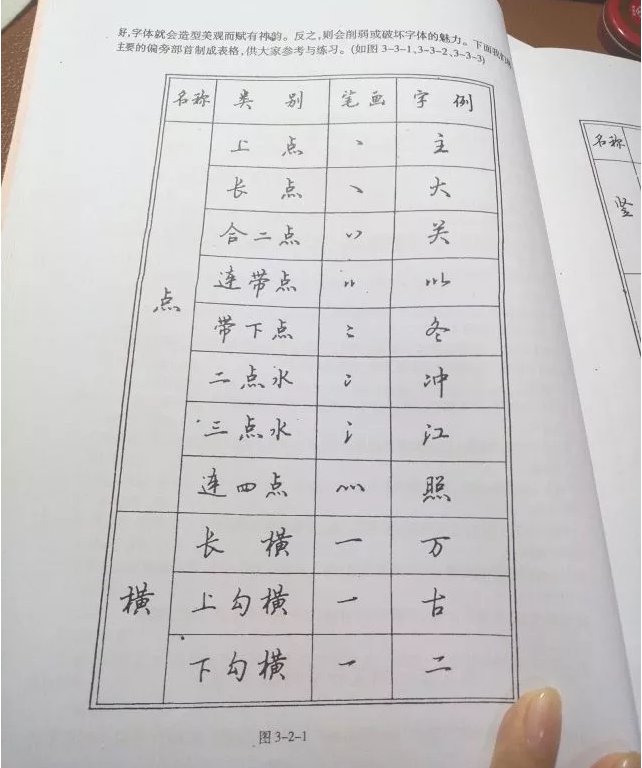 好,字体就会造型美观而赋有神韵。反之,则会削弱或破坏字体的魅力。下面我们将
主要的偏旁部首制成表格,供大家参考与练习。(如图3-3-1、3-3-2、3-3-3)
名称 类别 笔画 字例
点
上点 丶 主
长点 ㇏ 大
合二点 关
连带点 以
带下点 冬
二点水 冫 冲
三点水 氵 江
连四点 灬 照
横
长横 一 万
上勾横 一 古
下勾横 一 二
图3-2-1
名称
竖